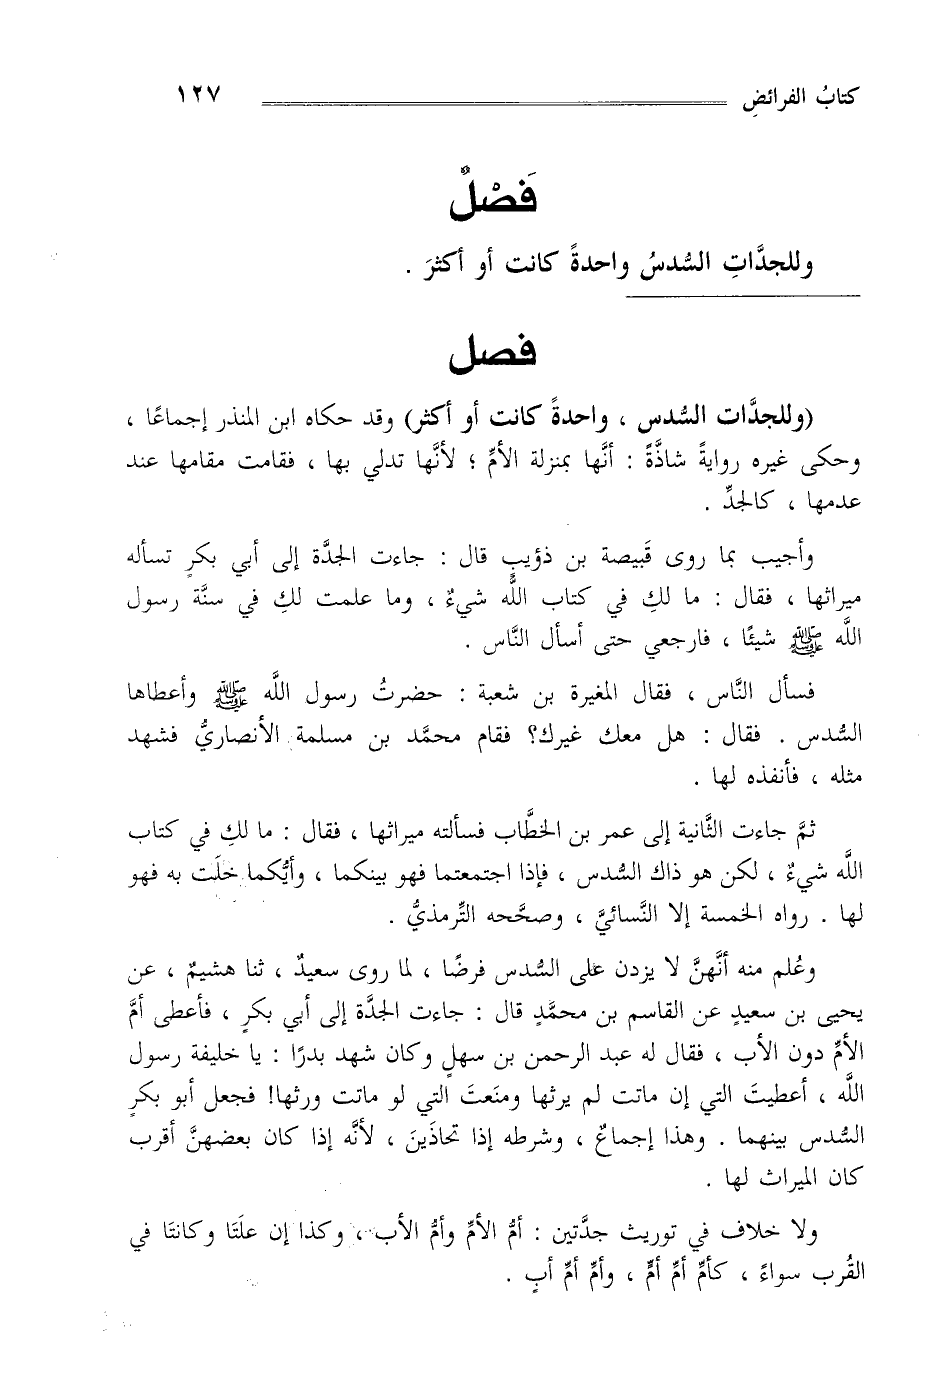 كتابُ الفرائضِ ١٢٧
فَصْلٌ
وللجدَّاتِ السُّدسُ واحدةً كانت أو أكثرَ .
فصل
(وللجدَّات السُّدس ، واحدةً كانت أو أكثر) وقد حكاه ابن المنذر إجماعًا ،
وحكى غيره روايةً شاذَّةً : أنَّها بمنزلة الأمِّ ؛ لأنَّها تدلي بها ، فقامت مقامها عند
عدمها ، كالجدِّ .
وأجيب بما روى قَبيصة بن ذؤيبٍ قال : جاءت الجدَّة إلى أبي بكرٍ تسأله
ميراثها ، فقال : ما لكِ في كتاب اللَّه شيءٌ ، وما علمت لكِ في سنَّة رسول
اللَّه ﷺ شيئًا ، فارجعي حتى أسأل النَّاس .
فسأل النَّاس ، فقال المغيرة بن شعبة : حضرتُ رسول اللَّه ﷺ وأعطاها
السُّدس . فقال : هل معك غيرك؟ فقام محمَّد بن مسلمة الأنصاريُّ فشهد
مثله ، فأنفذه لها .
ثمَّ جاءت الثَّانية إلى عمر بن الخطَّاب فسألته ميراثها ، فقال : ما لكِ في كتاب
اللَّه شيءٌ ، لكن هو ذاك السُّدس ، فإذا اجتمعتما فهو بينكما ، وأيُّكما خلَت به فهو
لها . رواه الخمسة إلا النَّسائيَّ ، وصحَّحه التِّرمذيُّ .
وعُلم منه أنَّهنَّ لا يزدن على السُّدس فرضًا ، لما روى سعيدٌ ، ثنا هشيمٌ ، عن
يحيى بن سعيدٍ عن القاسم بن محمَّدٍ قال : جاءت الجدَّة إلى أبي بكرٍ ، فأعطى أمَّ
الأمِّ دون الأب ، فقال له عبد الرحمن بن سهلٍ وكان شهد بدرًا : يا خليفة رسول
اللَّه ، أعطيتَ التي إن ماتت لم يرثها ومنَعتَ التي لو ماتت ورثها! فجعل أبو بكرٍ
السُّدس بينهما . وهذا إجماعٌ ، وشرطه إذا تحاذَين ، لأنَّه إذا كان بعضهنَّ أقرب
كان الميراث لها .
ولا خلاف في توريث جدَّتين : أمُّ الأمِّ وأمُّ الأب ، وكذا إن علَتَا وكانتَا في
القُرب سواءً ، كأمِّ أمِّ أمٍّ ، وأمِّ أمِّ أبٍ .